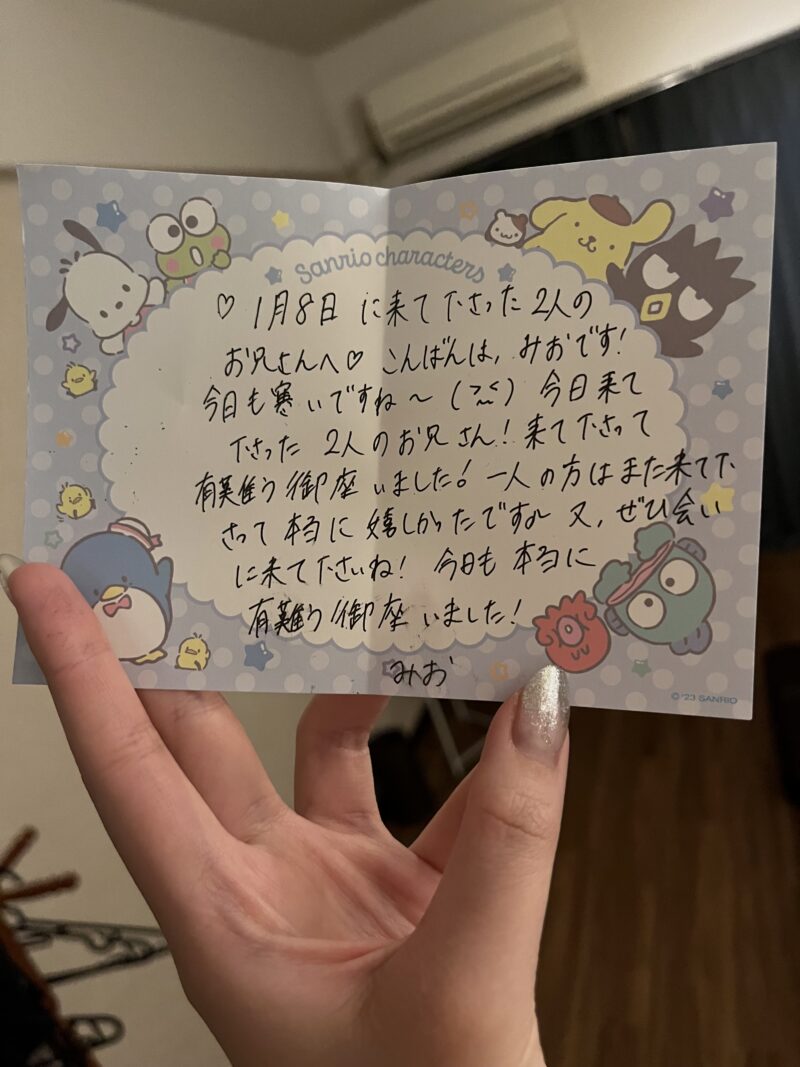 Sanrio characters
♡ 1月8日 に来て下さった 2人の
お兄さんへ♡ こんばんは, みおです!
今日も寒いですね〜 (>~<) 今日来て
下さった 2人のお兄さん! 来て下さって
有難う御座いました! 一人の方はまた来て下
さって 本当に 嬉しかったです♪ 又, ぜひ会い
に来て下さいね! 今日も 本当に
有難う御座いました!
みお
© '23 SANRIO